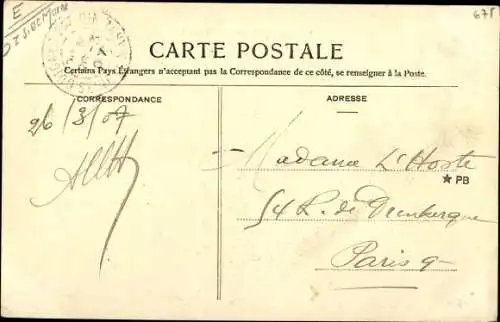 E
675
CARTE POSTALE
Certains Pays Étrangers n'acceptent pas la Correspondance de ce côté, se renseigner à la Poste.
CORRESPONDANCE
ADRESSE
26/3/07
Madame L'Hoste
★ PB
54 R. de Dunkerque
Paris 9